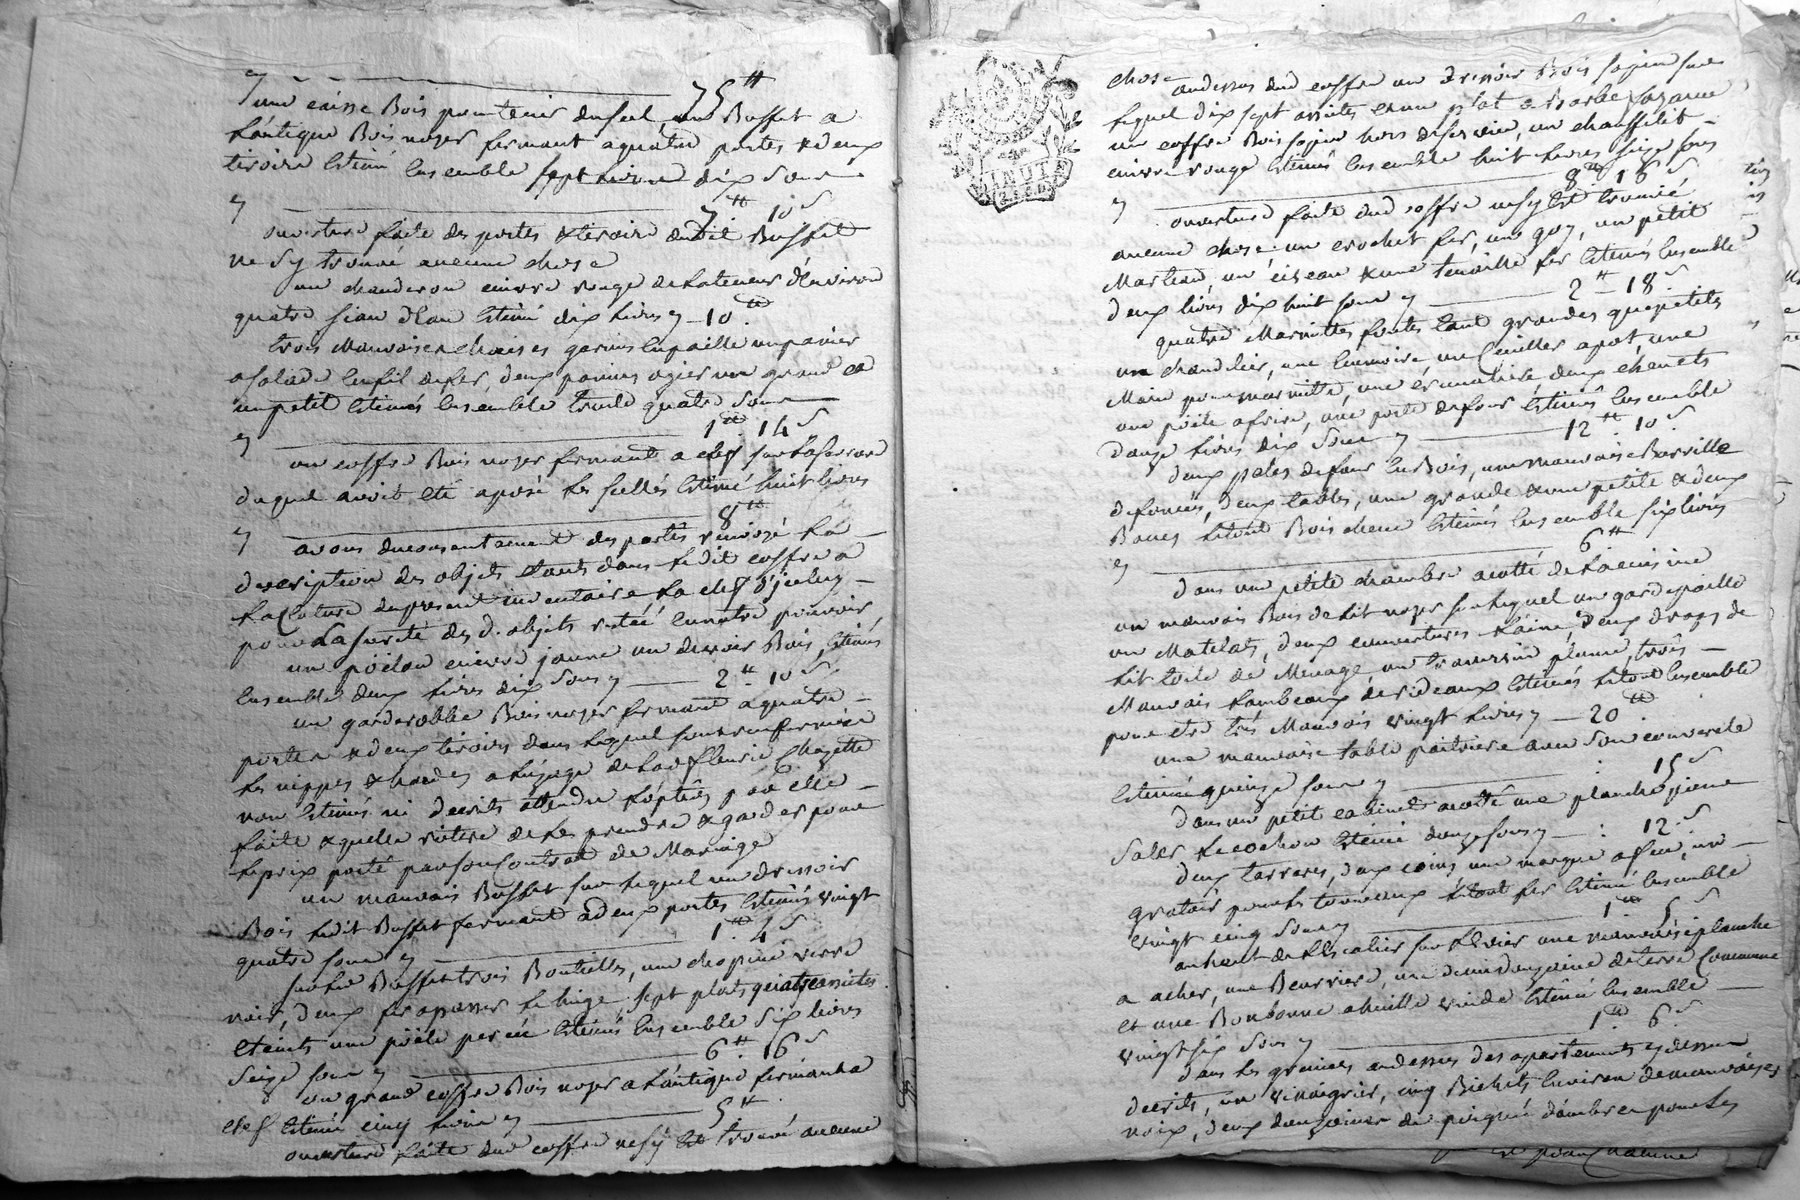 75 ₶
une caisse Bois pour tenir du sel un Buffet a
L'antique Bois noyer fermant a quatre portes & deux
tiroirs Estimé Ensemble sept livres dix sous
7 ₶ 10 s
ouverture faite des portes & tiroirs dudit Buffet
ne sy trouve aucune chose
un chauderon cuivre rouge de Lateneur d'Environ
quatre siau d'Eau Estimé dix livres 10 ₶
trois mauvaises chaises garnis En paille un panier
a salade En fil de fer, deux un grand &
un petit Estimés Ensemble trente quatre sous
1 ₶ 14 s
un coffre Bois noyer fermant a clef sur la serrure
duquel avoit eté aposé les scellés Estimé huit livres
8 ₶
avons du consentement des parties renvoyé La
description des objets étants dans ledit coffre a
La Cloture du present inventaire La clef d'jceluy
pour La sureté des d. objets restée En notre pouvoir
un pöêlon cuivre jaune un dressoir Bois Estimés
Ensemble deux livres dix sous 2 ₶ 10 s
un garderobbe Bois noyer fermant a quatre
portes & deux tiroirs dans lequel sont renfermées
les nippes & hardes a L'usage de Lad. fleurie Chazette
non Estimés ni decrits attendu par elle
faite & quelle de les prendre & garder pour
le prix porté par son Contrat de Mariage
un mauvais Buffet sur lequel un dressoir
Bois ledit Buffet fermant a deux portes Estimés vingt
quatre sous 1 ₶ 4 s
sur le Buffet trois Bouteilles, une chopine verre
noir, deux fer a passer le linge sept plats quatre assiettes
etaints une pöêle percée Estimés Ensemble six livres
seize sous 6 ₶ 16 s
un grand coffre Bois noyer a L'antique fermant a
clef Estimé cinq livres 5 ₶
ouverture faite dud coffre ne sy Est trouvé aucune
chose
audessus dud coffre un dressoir Bois sapin sur
lequel dix sept assiettes & un plat a Barbe fayance
un coffre Bois sapin hors de service, un chauffelit
cuivre rouge Estimés Ensemble huit livres seize sous
8 ₶ 16 s
ouverture faite dud coffre ne sy Est trouvé
aucune chose, un crochet fer, une goy, un petit
Marteau, un ciseau & une tenaille fer Estimés Ensemble
deux livres dix huit sous 2 ₶ 18 s
quatre Marmittes fontes tant grandes que petites
un chandelier, une un Cuiller a pot une
Main pour marmitte, une deux chenets
une pöêle a frire, une porte de four Estimés Ensemble
douze livres dix sous 12 ₶ 10 s
deux pales de four En Bois, une mauvaise Barrille
defoncée, deux tables, une grande & une petite & deux
Bancs le tout Bois chene Estimés Ensemble six livres
6 ₶
dans une petite chambre acotté de La cuisine
un mauvais Bois de Lit noyer sur lequel une gardepaille
un Matelat, deux couvertures Laine, deux draps de
Lit toile de Menage, un traversin plume, trois
Mauvais Lambeaux de rideaux Estimés le tout Ensemble
pour etre très Mauvais vingt livres 20 ₶
une mauvaise table paitriere avec son couvercle
Estimée quinze sous 15 s
dans un petit cabinet acotté une planche pour
saler Le cochon Estimé douze sous 12 s
deux tarrares, deux coins une marque a feu, un
gratoir pour les tonneaux le tout fer Estimé Ensemble
vingt cinq sous 1 ₶ 5 s
au haut de L'Escalier sur L'Evier une mauvaise planche
a acher, une Beurriere, une demi douzaine de terre Commune
et une Bonbonne a huille vuide Estimé Ensemble
vingt six sous 1 ₶ 6 s
dans les greniers au dessus des apartements cy dessus
decrits, un vinaigrier, cinq Bichets Environ de mauvaises
noix, deux douzaines de poignée pour les